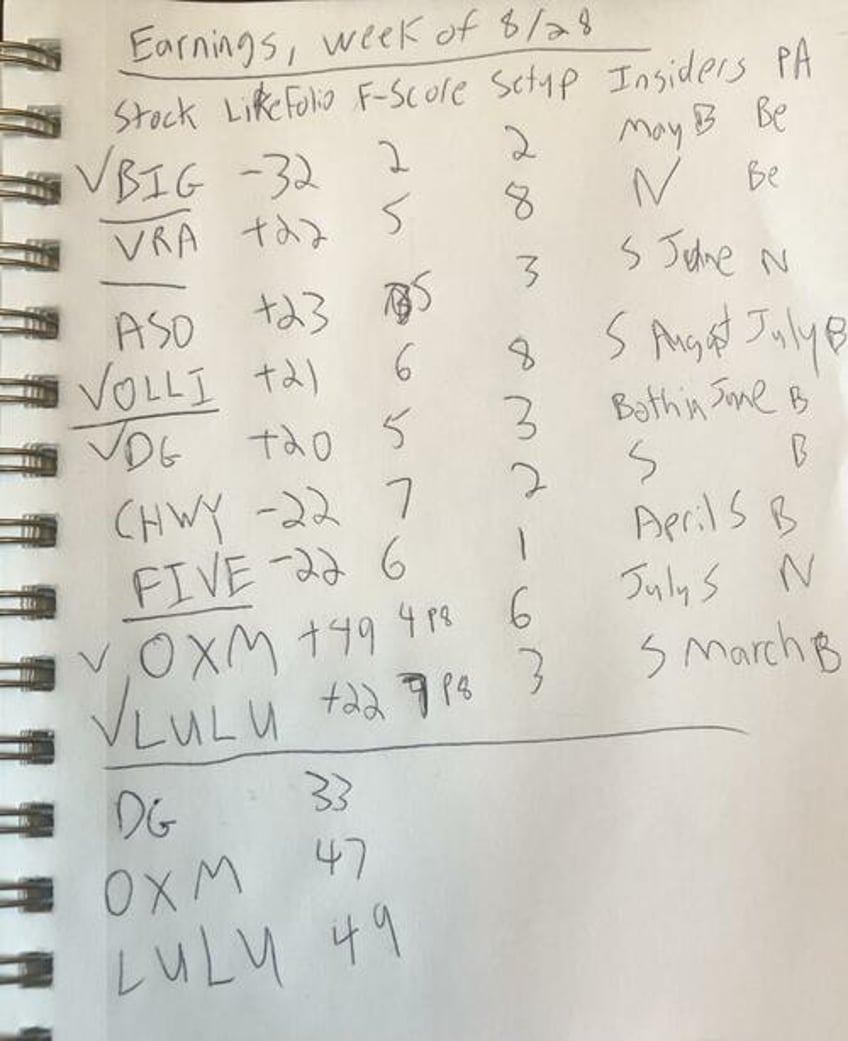 Earnings, week of 8/28
Stock LikeFolio F-Score Setup Insiders PA
√BIG -32 2 2 May B Be
VRA +22 5 8 N Be
ASO +23 5 3 S June N
√OLLI +21 6 8 S August July B
√DG +20 5 3 Both in June B
CHWY -22 7 2 S B
FIVE -22 6 1 April S B
√ OXM +49 4 P8 6 July S N
√LULU +22 7 P8 3 S March B
DG 33
OXM 47
LULU 49